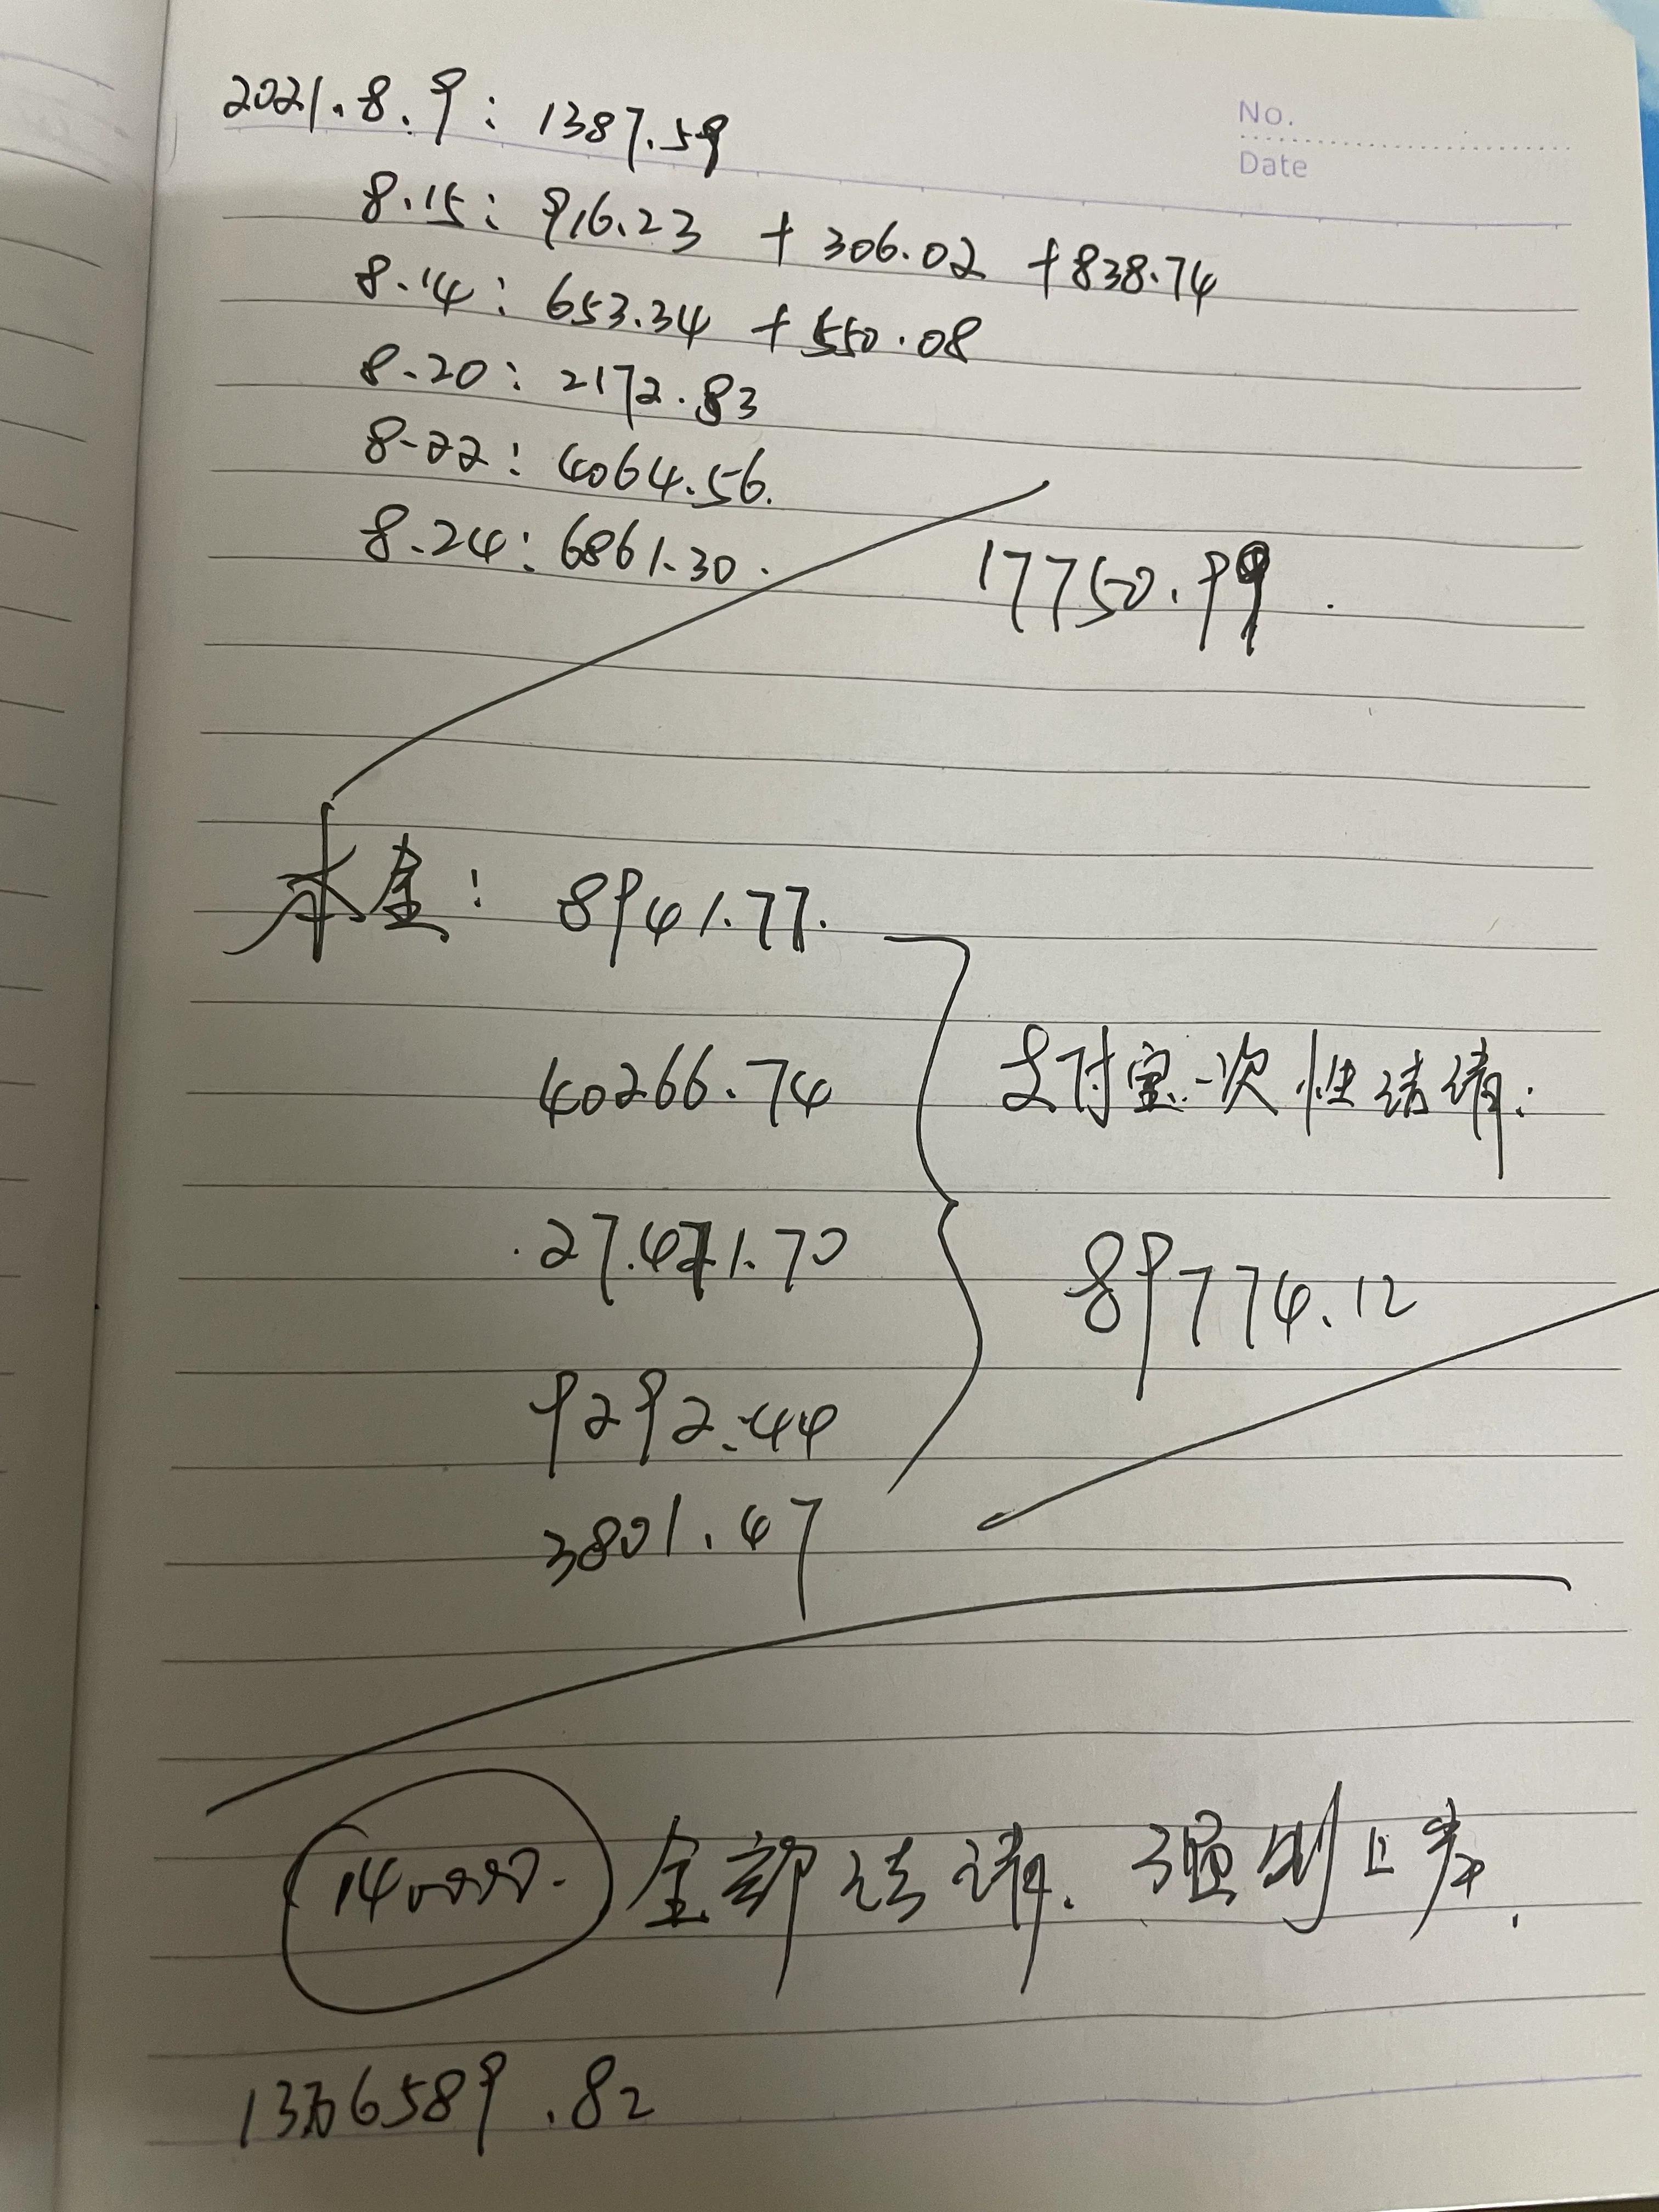 No.
Date
2021.8.9: 1387.59
8.15: 916.23 + 306.02 + 838.74
8.14: 653.34 + 550.08
8-20: 2172.83
8-22: 4064.56.
8.24: 6861.30.
17750.99.
本金: 8941.77.
40266.74
支付宝一次性结清:
27.471.70
89774.12
9292.44
3801.47
140000. 全部结清. 强制上岸.
13万6589.82